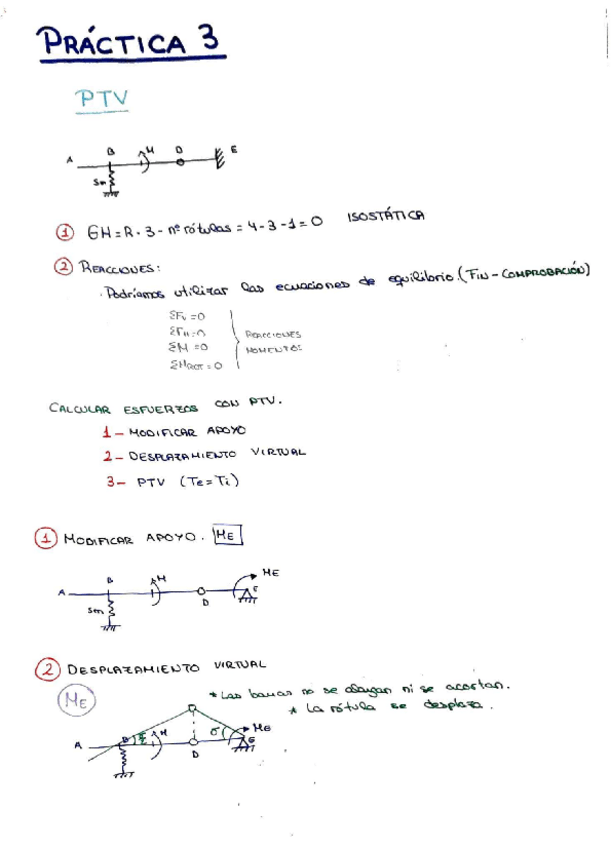 PRÁCTICA 3
PTV
A B M D E
Sm
1 GH = R - 3 - nº rótulas = 4 - 3 - 1 = 0 ISOSTÁTICA
2 REACCIONES:
· Podríamos utilizar las ecuaciones de equilibrio. (FIN - COMPROBACIÓN)
ΣFV = 0
ΣFH = 0 REACCIONES
ΣM = 0 MOMENTOS
ΣMROT = 0
CALCULAR ESFUERZOS CON PTV.
1- MODIFICAR APOYO
2- DESPLAZAMIENTO VIRTUAL
3- PTV (Te = Ti)
1 MODIFICAR APOYO. ME
A B M D E ME
Sm
2 DESPLAZAMIENTO VIRTUAL
ME
* Las barras no se alargan ni se acortan.
* La rótula se desplaza.
A B M D σ E ME